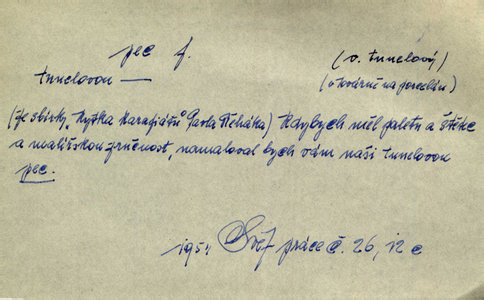 pec f.
(v. tunelový)
tunelovou —
(v továrně na porcelán)
(ze sbírky „Kytka karafiátů" Pavla Řeháka) Kdybych měl paletu a štětce
a malířskou zručnost, namaloval bych vám naši tunelovou
pec.
1954 Svět práce č. 26, 12 c